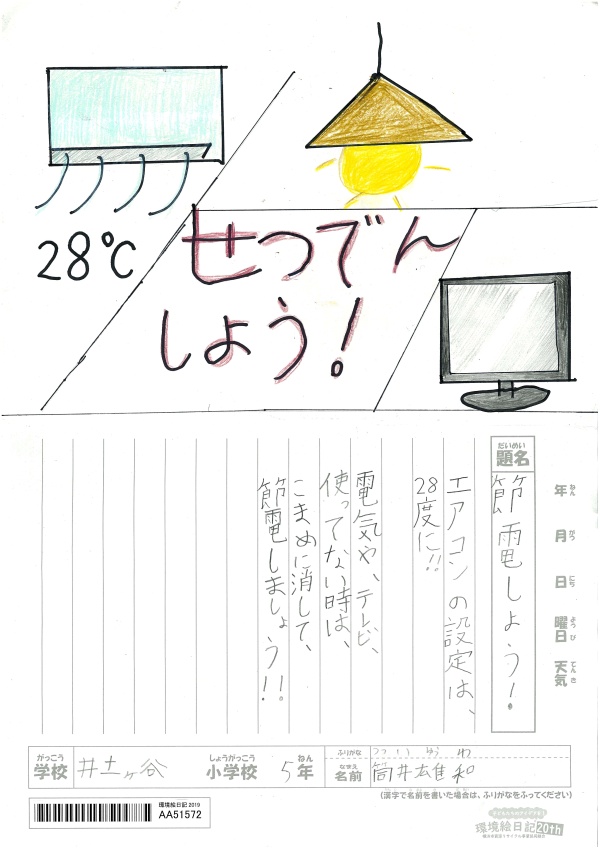 28℃
せつでん
しよう!
だいめい
題名
節電しよう!
年 ねん
月 がつ
日 にち
曜日 ようび
天気 てんき
エアコンの設定は、
28度に!!
電気や、テレビ、
使ってない時は、
こまめに消して、
節電しましょう!!
がっこう
学校
井土ヶ谷
しょうがっこう
小学校
5年 ねん
ふりがな
つつい ゆうわ
なまえ
名前
筒井雄和
(漢字で名前を書いた場合は、ふりがなをふってください)
環境絵日記2019
AA51572
環境絵日記20th